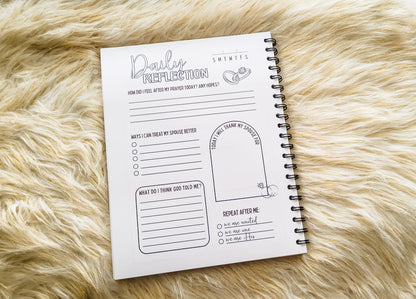 Daily
REFLECTION
S M T W T F S
HOW DID I FEEL AFTER MY PRAYER TODAY? ANY HOPES?
WAYS I CAN TREAT MY SPOUSE BETTER
TODAY I WILL THANK MY SPOUSE FOR
WHAT DO I THINK GOD TOLD ME?
REPEAT AFTER ME:
we are united
we are one
we are His